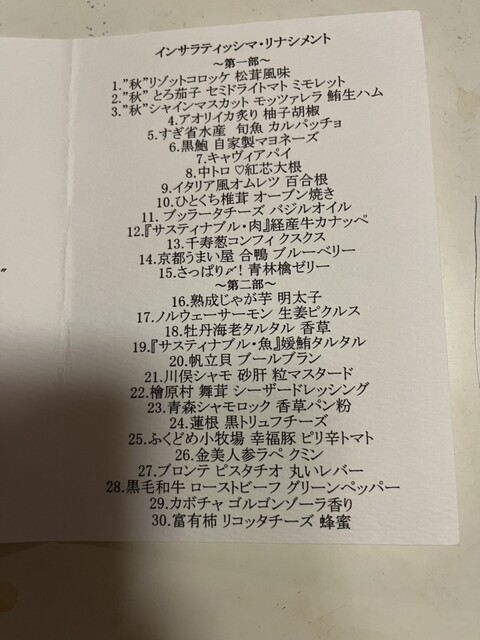 インサラティッシマ・リナシメント
～第一部～
1.”秋”リゾットコロッケ 松茸風味
2.”秋” とろ茄子 セミドライトマト ミモレット
3.”秋”シャインマスカット モッツァレラ 鮪生ハム
4.アオリイカ炙り 柚子胡椒
5.すぎ省水産 旬魚 カルパッチョ
6.黒鮑 自家製マヨネーズ
7.キャヴィアパイ
8.中トロ♡紅芯大根
9.イタリア風オムレツ 百合根
10.ひとくち椎茸 オーブン焼き
11. ブッラータチーズ バジルオイル
12.『サスティナブル・肉』経産牛カナッペ
13.千寿葱コンフィ クスクス
14.京都うまい屋 合鴨 ブルーベリー
15.さっぱり〆! 青林檎ゼリー
～第二部～
16.熟成じゃが芋 明太子
17.ノルウェーサーモン 生姜ピクルス
18.牡丹海老タルタル 香草
19.『サスティナブル・魚』媛鮪タルタル
20.帆立貝 ブールブラン
21.川俣シャモ 砂肝 粒マスタード
22.檜原村 舞茸 シーザードレッシング
23.青森シャモロック 香草パン粉
24.蓮根 黒トリュフチーズ
25.ふくどめ小牧場 幸福豚 ピリ辛トマト
26.金美人参ラペ クミン
27.ブロンテ ピスタチオ 丸いレバー
28.黒毛和牛 ローストビーフ グリーンペッパー
29.カボチャ ゴルゴンゾーラ香り
30.富有柿 リコッタチーズ 蜂蜜